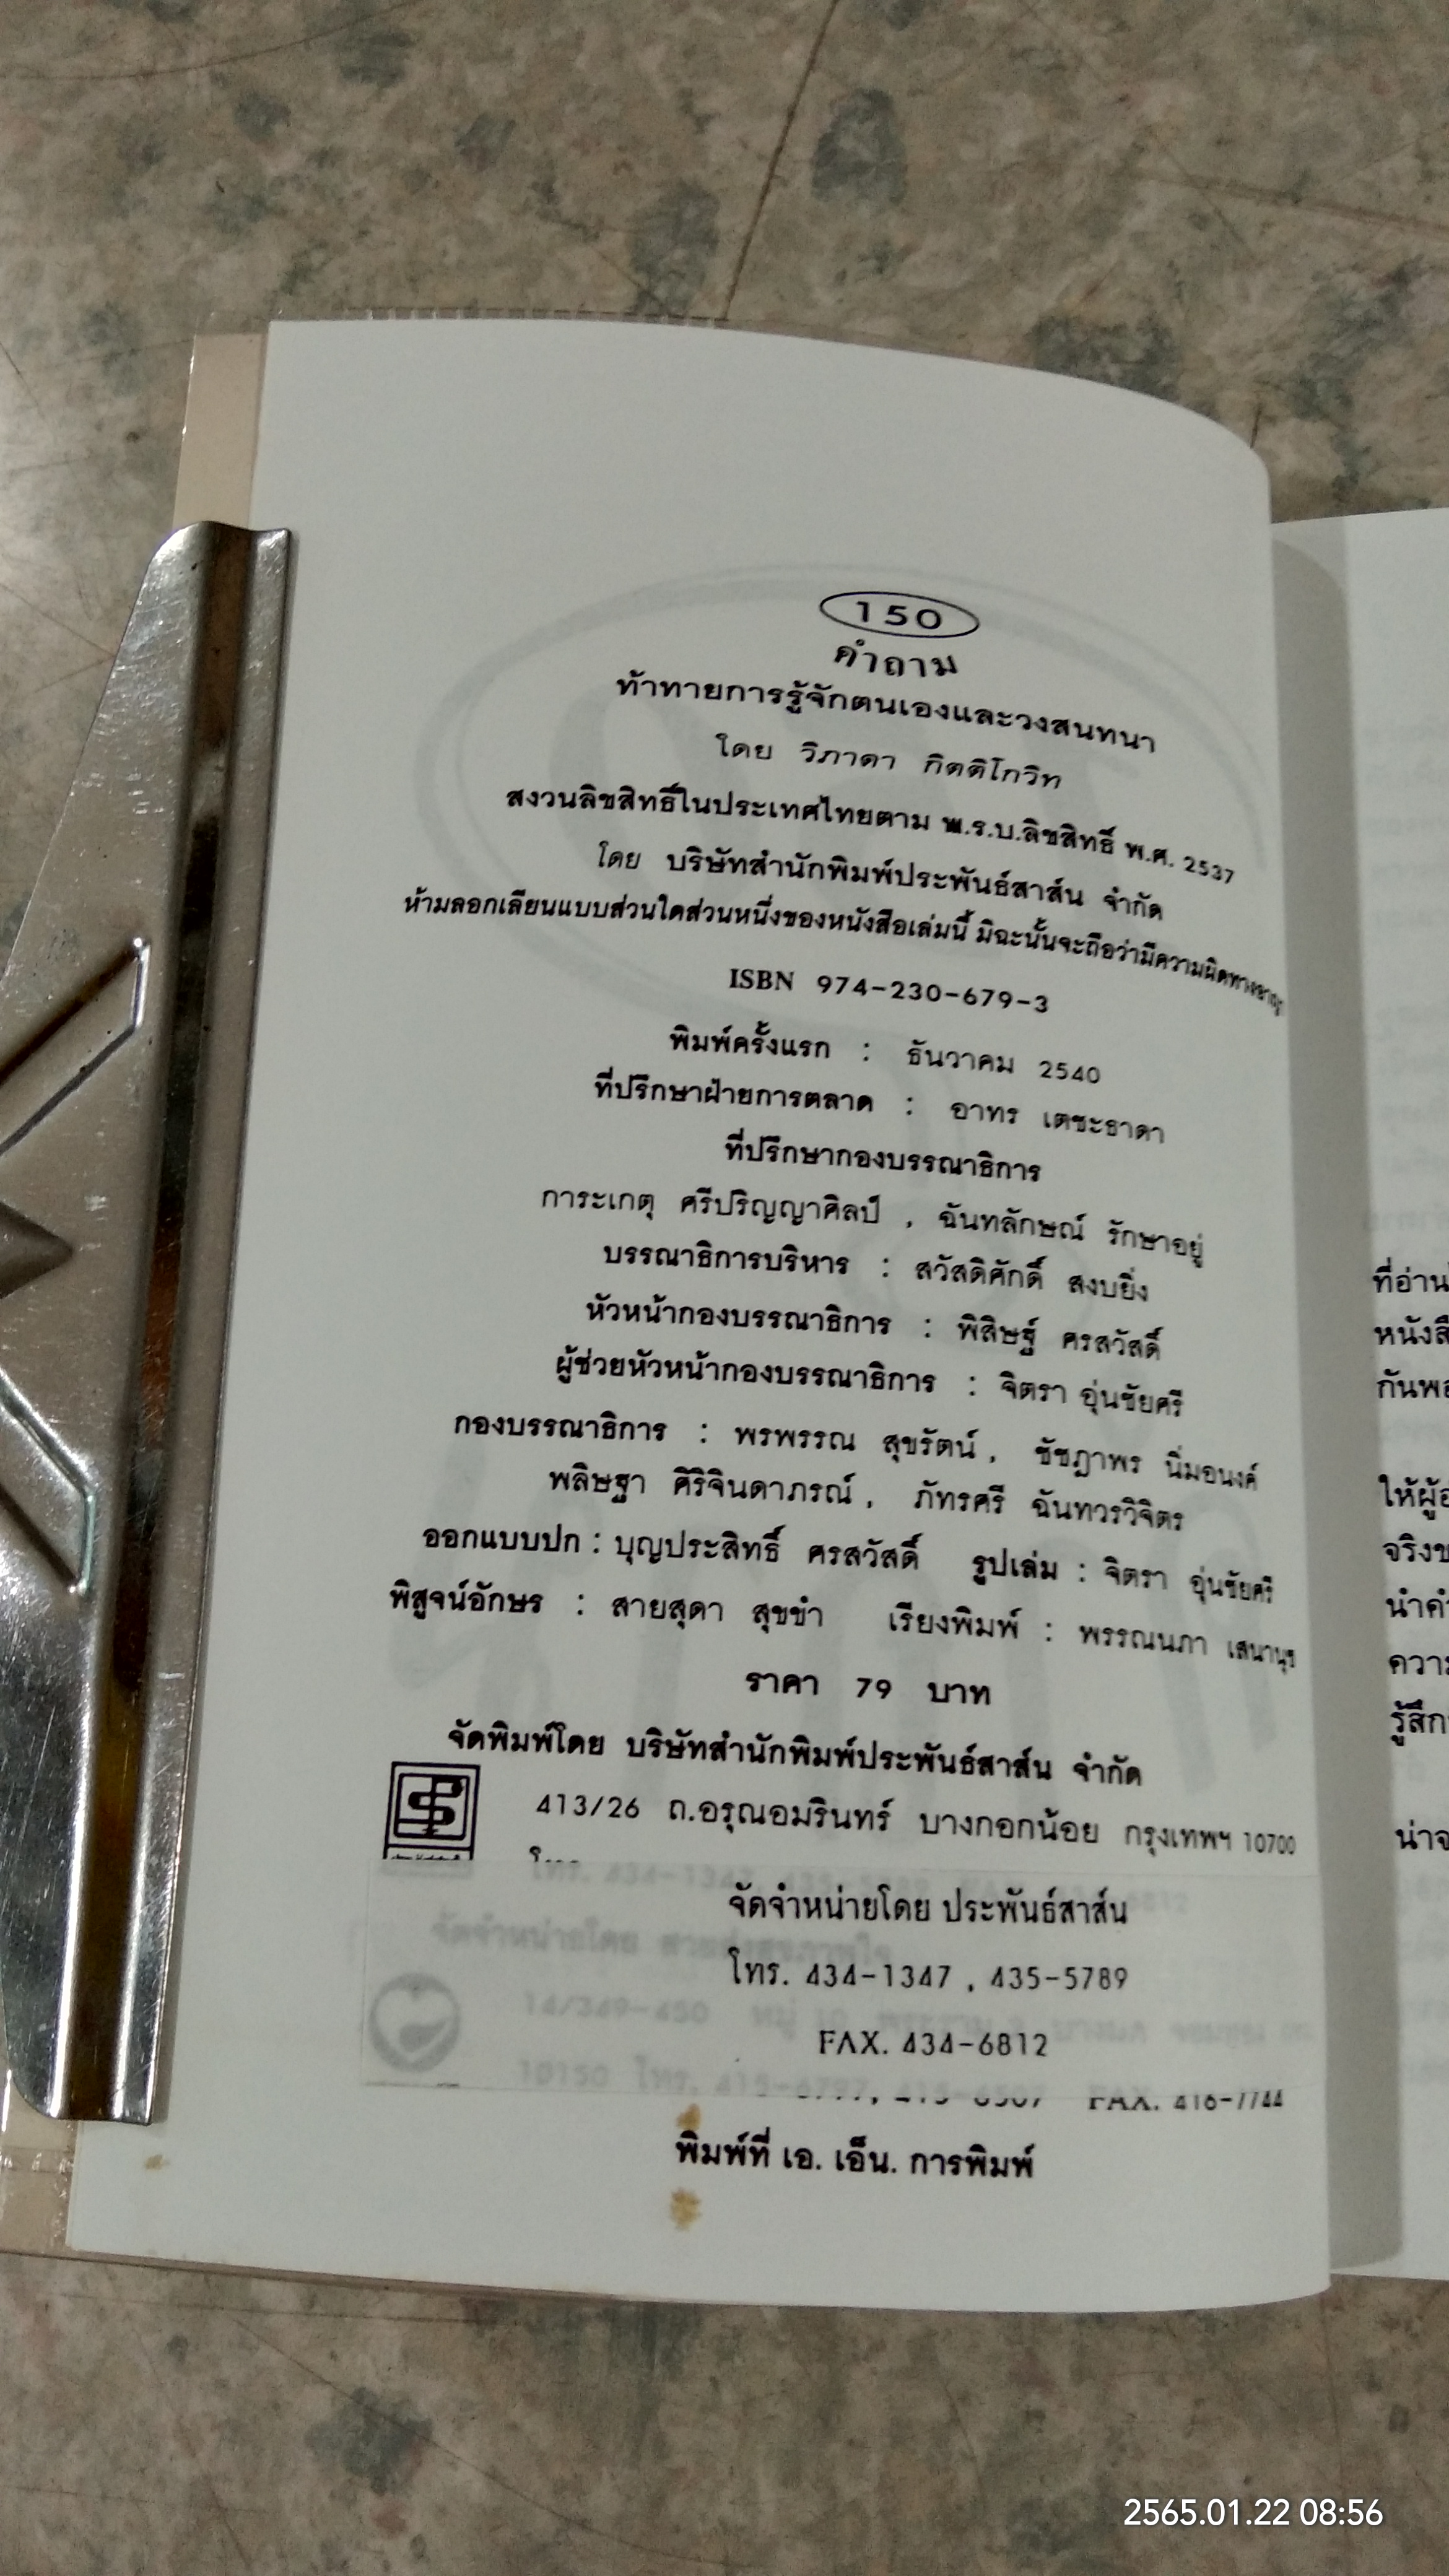 150
คำถาม
ท้าทายการรู้จักตนเองและวงสนทนา
โดย วิภาดา กิตติโกวิท
สงวนลิขสิทธิ์ในประเทศไทยตาม พ.ร.บ.ลิขสิทธิ์ พ.ศ. 2537
โดย บริษัทสำนักพิมพ์ประพันธ์สาส์น จำกัด
ห้ามลอกเลียนแบบส่วนใดส่วนหนึ่งของหนังสือเล่มนี้ มิฉะนั้นจะถือว่ามีความผิดทางอาญา
ISBN 974-230-679-3
พิมพ์ครั้งแรก : ธันวาคม 2540
ที่ปรึกษาฝ่ายการตลาด : อาทร เตชะธาดา
ที่ปรึกษากองบรรณาธิการ
การะเกตุ ศรีปริญญาศิลป์ , ฉันทลักษณ์ รักษาอยู่
บรรณาธิการบริหาร : สวัสดิศักดิ์ สงบยิ่ง
หัวหน้ากองบรรณาธิการ : พิสิษฐ์ ศรสวัสดิ์
ผู้ช่วยหัวหน้ากองบรรณาธิการ : จิตรา อุ่นชัยศรี
กองบรรณาธิการ : พรพรรณ สุขรัตน์ , ชัชฎาพร นิ่มอนงค์
พลิษฐา ศิริจินดาภรณ์ , ภัทรศรี ฉันทวรวิจิตร
ออกแบบปก : บุญประสิทธิ์ ศรสวัสดิ์ รูปเล่ม : จิตรา อุ่นชัยศรี
พิสูจน์อักษร : สายสุดา สุขขำ เรียงพิมพ์ : พรรณนภา เสนานุช
ราคา 79 บาท
จัดพิมพ์โดย บริษัทสำนักพิมพ์ประพันธ์สาส์น จำกัด
413/26 ถ.อรุณอมรินทร์ บางกอกน้อย กรุงเทพฯ 10700
จัดจำหน่ายโดย ประพันธ์สาส์น
โทร. 434-1347 , 435-5789
FAX. 434-6812
FAX. 416-7744
พิมพ์ที่ เอ. เอ็น. การพิมพ์
ที่อ่าน
ให้ผู้
รู้สึก
2565.01.22 08:56